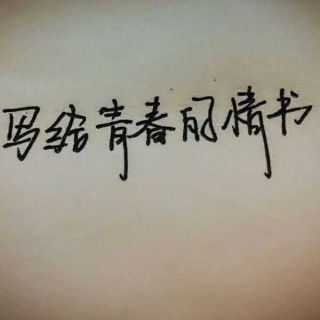 写给青春的情书